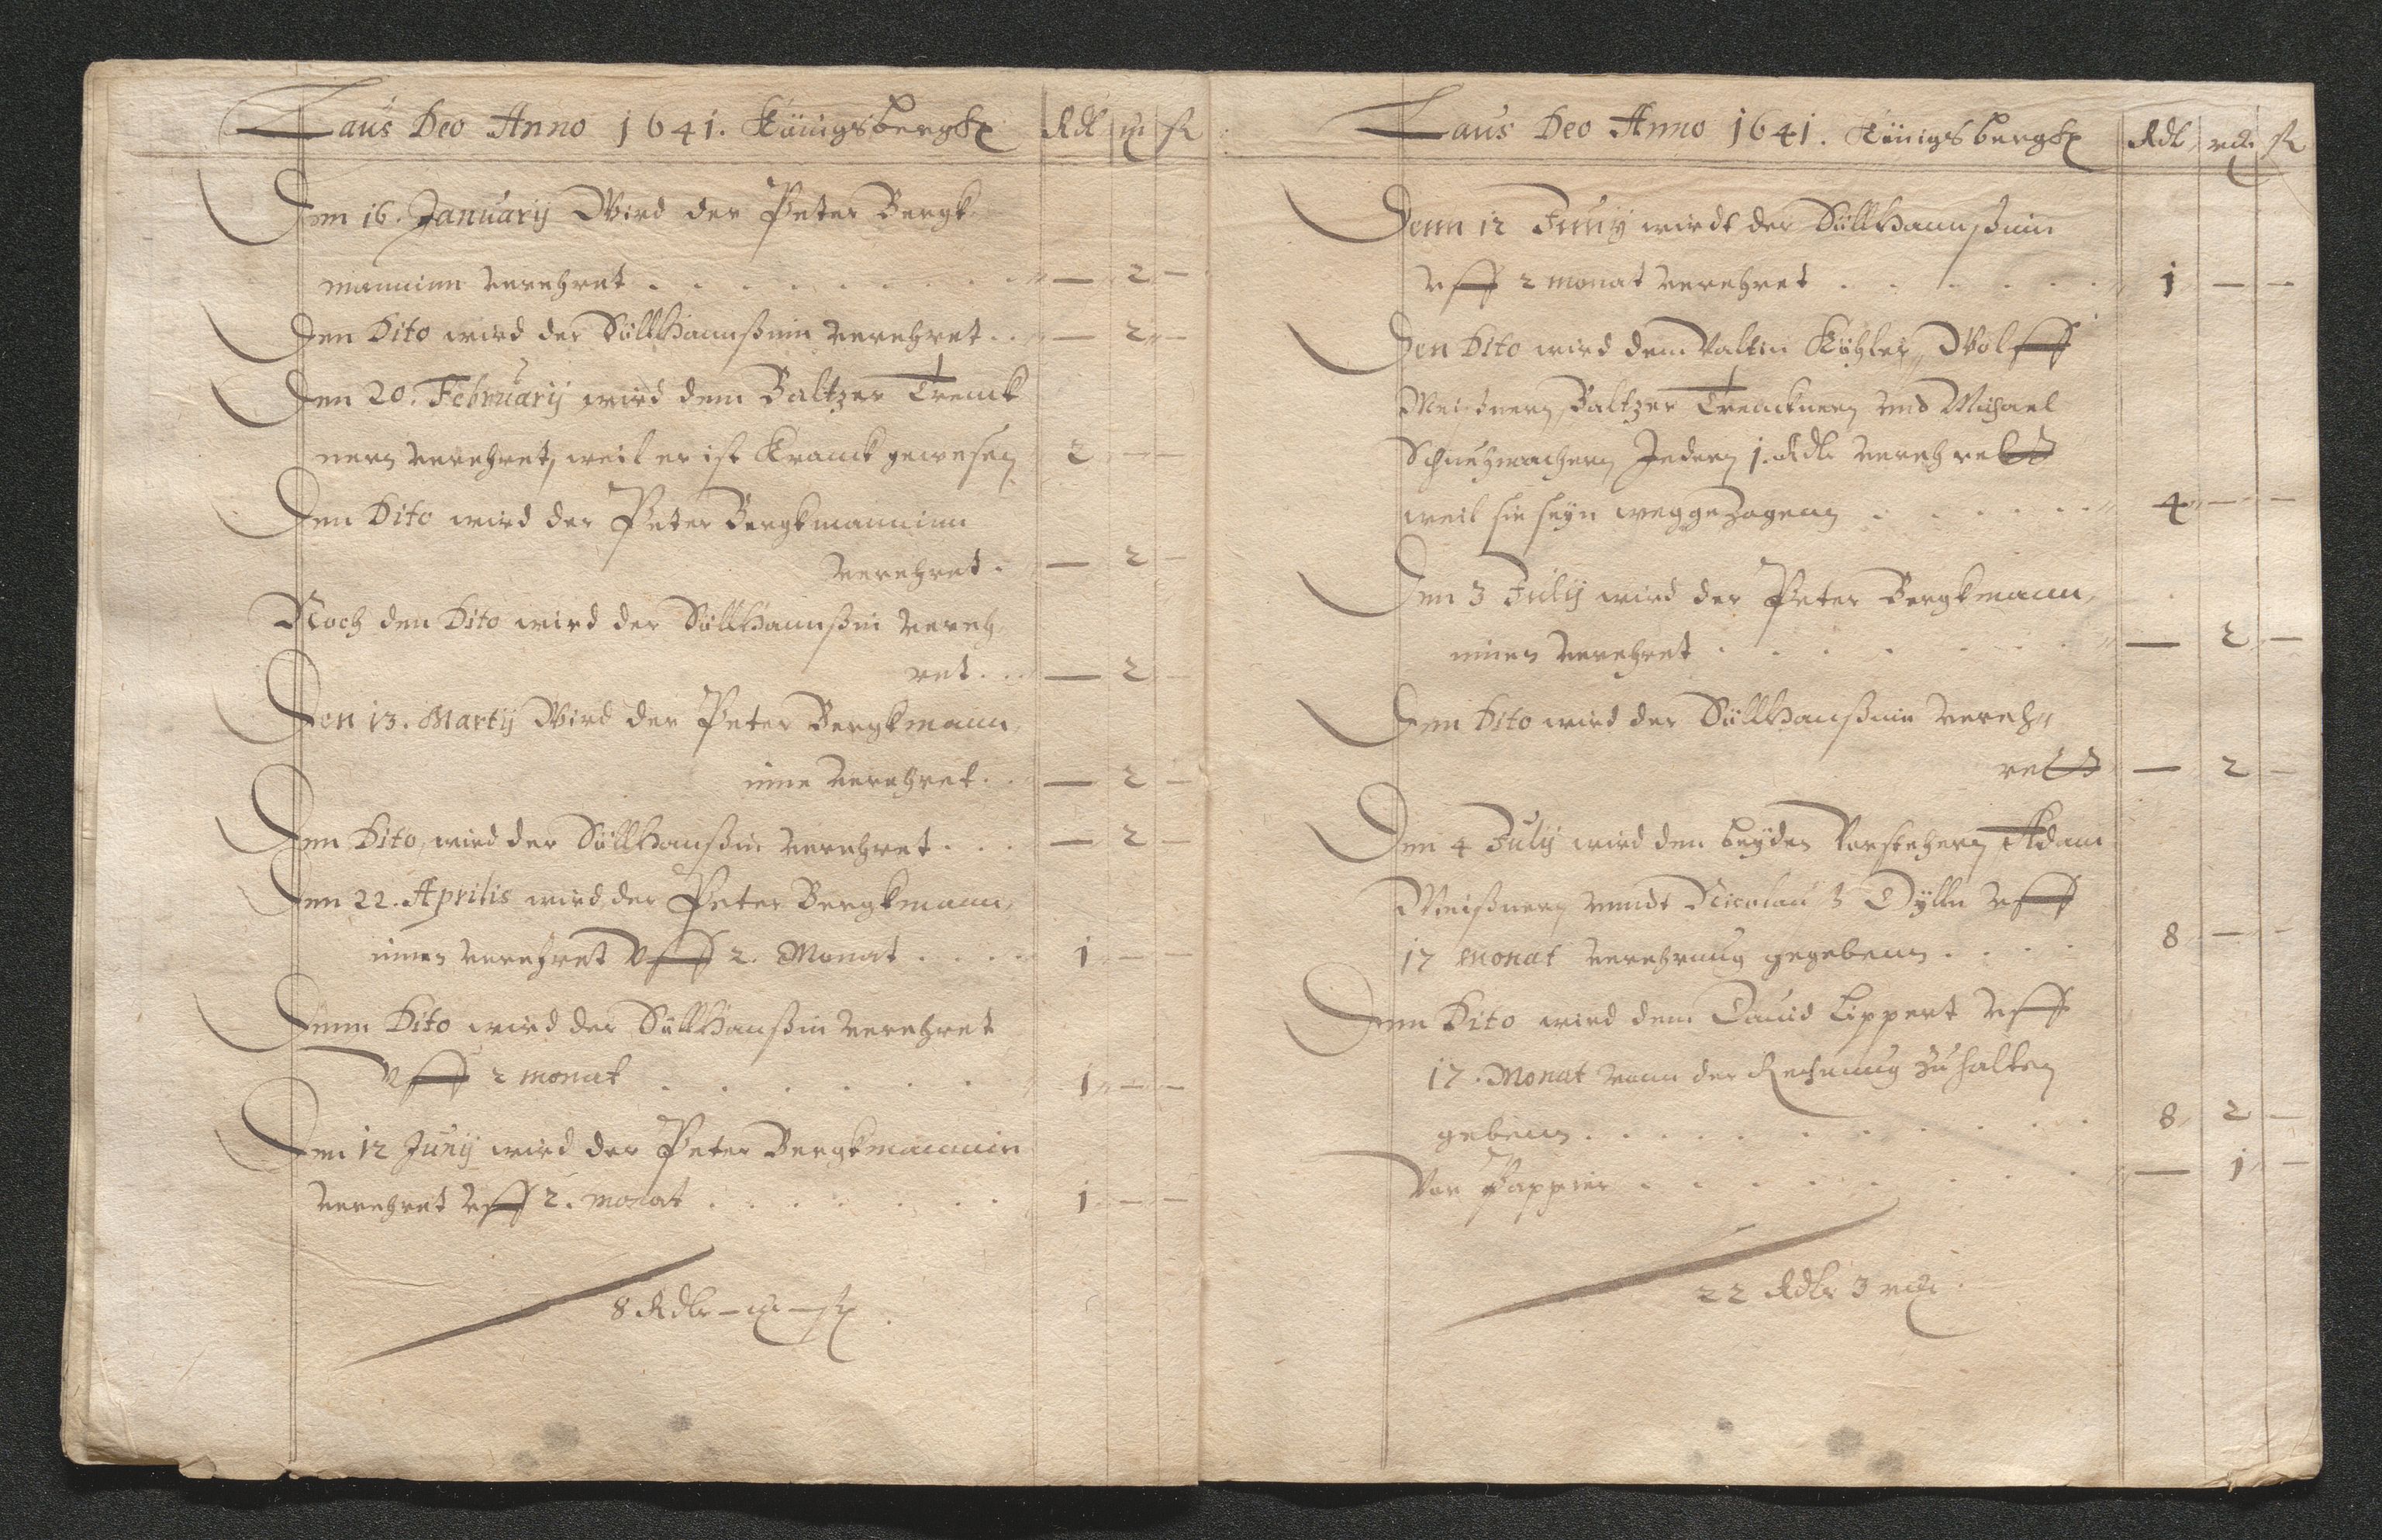 Laus Deo Anno 1641. Königsbergk Rdl m ß
Den 16. Januarÿ Wird der Peter Bergk
manninn verehret . . . . . . . — 2 —
Den Dito wird der SüllHannßnin verehret . . — 2 —
Den 20. Februarÿ wird dem Baltzer Trenck
nern verehret, weil er ist Kranck gewesen 2 — —
Den Dito wird der Peter Bergkmanninn
verehret . — 2 —
Noch den Dito wird der SüllHannßin vereh
ret . . . — 2 —
Den 13. Martÿ Wird der Peter Bergkmann
inne verehret . . — 2 —
Den Dito, wird der SüllHanßin verehret . . . — 2 —
Den 22. Aprilis wird der Peter Bergkmann,
innen verehret Vff 2. Monat . . . . 1 — —
Denn Dito wird der SüllHanßin verehret
Vff 2 monat . . . . . . . 1 — —
Den 12 Junÿ wird der Peter Bergkmannin
verehret vff 2. monat . . . . . . . 1 — —
8 Rdlr — m — ß .
Laus Deo Anno 1641. Königsbergk Rdl mk ß
Denn 12 Junÿ wirdt der SüllHannßnin
vff 2 monat verehret . . . . . . 1 — —
Den Dito wird dem Valtin Köhler, Wolff
Meißnern, Baltzer Trencknern vnd Michael
Schnuhmachern Jedern 1. Rdlr verehrett
weil sie seÿn weggezogenn . . . . . . 4 — —
Den 3 Julÿ wird der Peter Bergkmann,
innen verehret . . . . . . . — 2 —
Den Dito wird der SüllHanßnin vereh„
rett — 2 —
Den 4 Julÿ wird den beÿden Vorstehern Adam
Meißnern vnndt Nicolauß Dÿlln vff
17 monat verehrung gegebenn . . . . 8 — —
Denn Dito wird dem Dauid Lippert vff
17. Monat vonn der Rechnung zu halten
gebenn . . . . . . . . . . 8 2 —
Vor Pappier . . . . . . . . . — 1 —
22 Rdlr 3 mk .